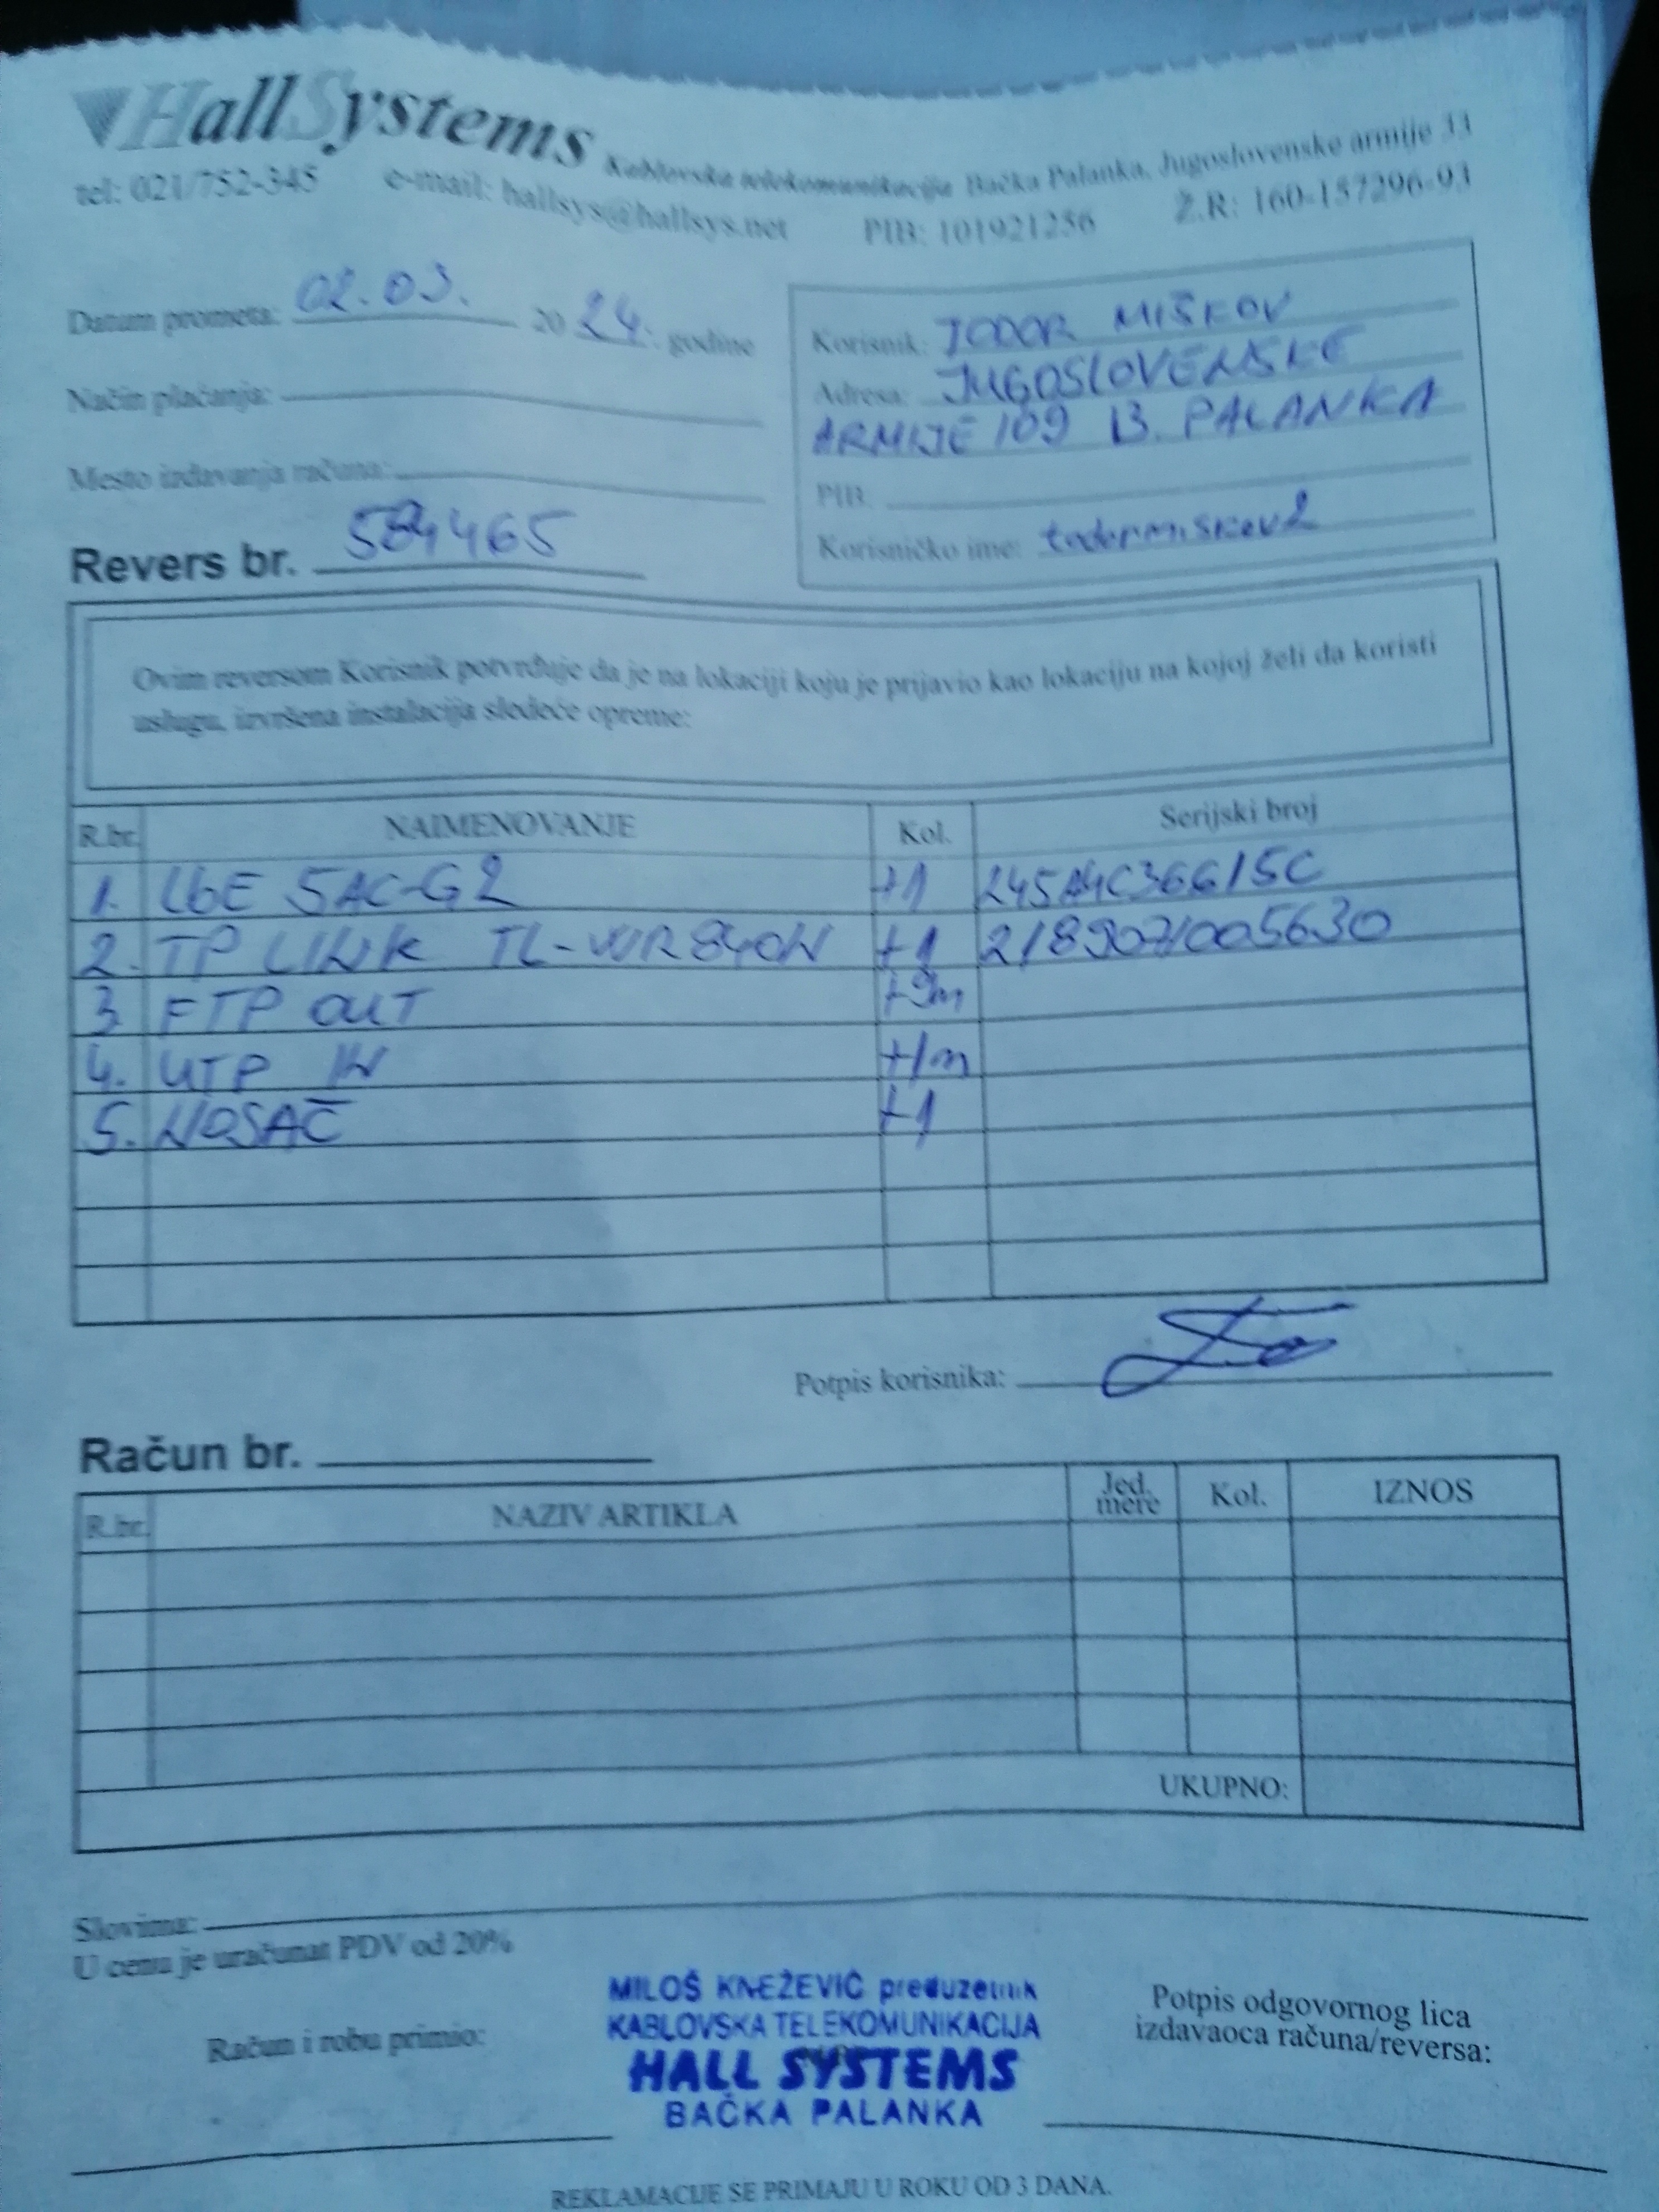 HallSystems Kablovska telekomunikacija Bačka Palanka, Jugoslovenske armije 33
tel: 021/752-345 e-mail: hallsys@hallsys.net PIB: 101921256 Ž.R: 160-157296-93
Datum prometa: 02.03. 2024. godine
Način plaćanja:
Mesto izdavanja računa:
Korisnik: TODOR MIŠKOV
Adresa: JUGOSLOVENSKE
ARMIJE 109 B. PALANKA
PIB:
Korisničko ime: todormiskov2
Revers br. 584465
Ovim reversom Korisnik potvrđuje da je na lokaciji koju je prijavio kao lokaciju na kojoj želi da koristi
uslugu, izvršena instalacija sledeće opreme:
R.br. NAIMENOVANJE Kol. Serijski broj
1. LBE 5AC-G2 +1 245A4C36615C
2. TP LINK TL-WR840N +1 2189071005630
3. FTP OUT +9m
4. UTP IN +1m
5. NOSAČ +1
Potpis korisnika:
Račun br.
R.br. NAZIV ARTIKLA Jed. mere Kol. IZNOS
UKUPNO:
Slovima:
U cenu je uračunat PDV od 20%
Račun i robu primio:
MILOŠ KNEŽEVIĆ preduzetnik
KABLOVSKA TELEKOMUNIKACIJA
HALL SYSTEMS
BAČKA PALANKA
Potpis odgovornog lica
izdavaoca računa/reversa:
REKLAMACIJE SE PRIMAJU U ROKU OD 3 DANA.